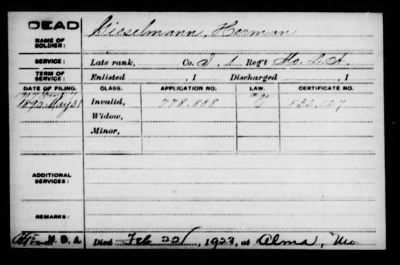 DEAD
NAME OF SOLDIER: Wieselmann, Herman
SERVICE: Late rank, Co. I, 1 Reg't Mo. L. A.
TERM OF SERVICE: Enlisted , 1 Discharged , 1
DATE OF FILING. CLASS. APPLICATION NO. LAW. CERTIFICATE NO.
1892 May 21 Invalid, 778.808
Widow,
Minor,
ADDITIONAL SERVICES:
REMARKS:
N. D. A. Died Feb 22, 1923, at Alma, Mo